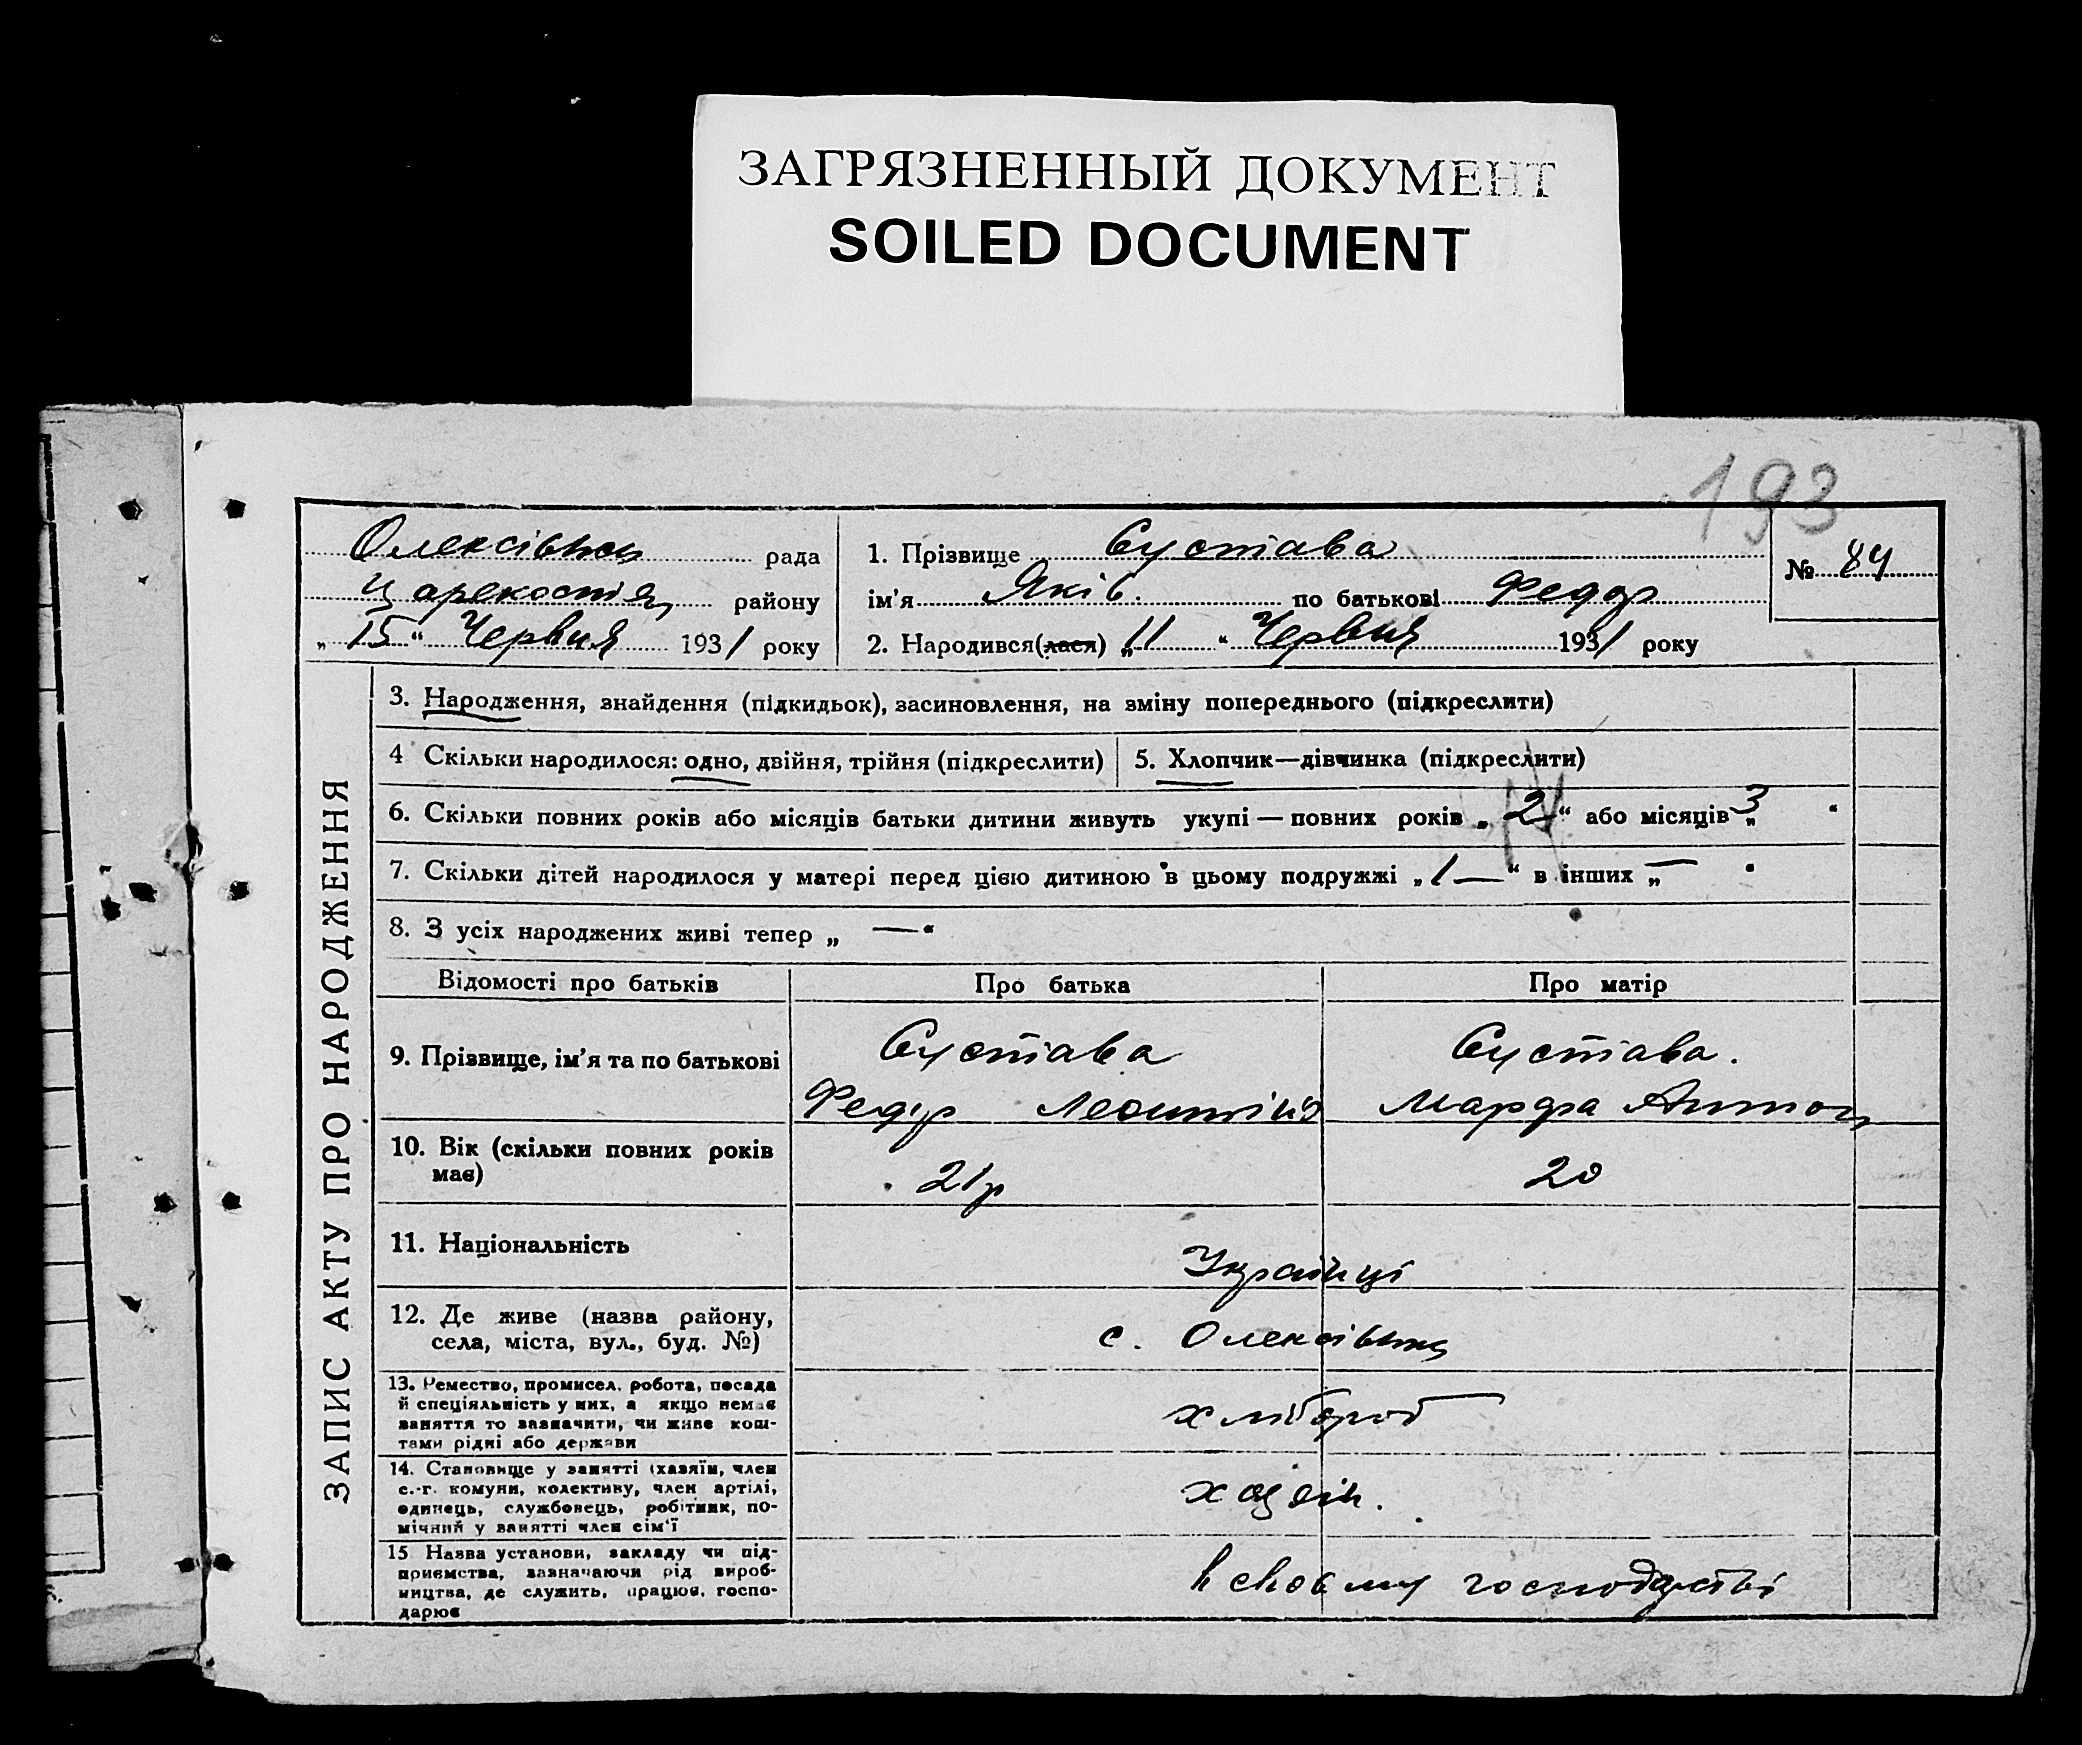 ЗАГРЯЗНЕННЫЙ ДОКУМЕНТ
SOILED DOCUMENT
193
Олексівка рада
району
„15“ Червня 1931 року
1. Прізвище Сустава
ім'я Яків. по батькові Федор
2. Народився(лася) „11“ Червня 1931 року
№ 84
ЗАПИС АКТУ ПРО НАРОДЖЕННЯ
3. Народження, знайдення (підкидьок), засиновлення, на зміну попереднього (підкреслити)
4 Скільки народилося: одно, двійня, трійня (підкреслити)
5. Хлопчик—дівчинка (підкреслити)
6. Скільки повних років або місяців батьки дитини живуть укупі — повних років „2“ або місяців „3“
7. Скільки дітей народилося у матері перед цією дитиною в цьому подружжі „1—“ в інших „—“
8. З усіх народжених живі тепер „—“
Відомості про батьків Про батька Про матір
9. Прізвище, ім'я та по батькові
Сустава
Федір Леонтійв
Сустава.
Марфа Антон
10. Вік (скільки повних років
має)
21р
20
11. Національність
Українці
12. Де живе (назва району,
села, міста, вул., буд. №)
с. Олексівка
13. Ремество, промисел, робота, посада
й спеціяльність у них, а якщо немає
заняття то зазначити, чи живе кош-
тами рідні або держави
хлібороб
14. Становище у занятті (хазяїн, член
с.-г. комуни, колективу, член артілі,
одинець, службовець, робітник, по-
мічний у занятті член сім'ї
хазяїн.
15 Назва установи, закладу чи під-
приємства, зазначаючи рід вироб-
ництва, де служить, працює, госпо-
дарює
в своєму господарстві